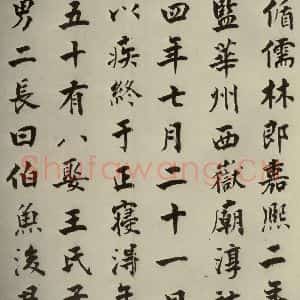 循儒林郎嘉熙二年
監華州西嶽廟淳
四年七月二十一日
以疾終于正寢淂年
五十有八娶王氏子
男二長曰伯魚浚
Shufawang.CN